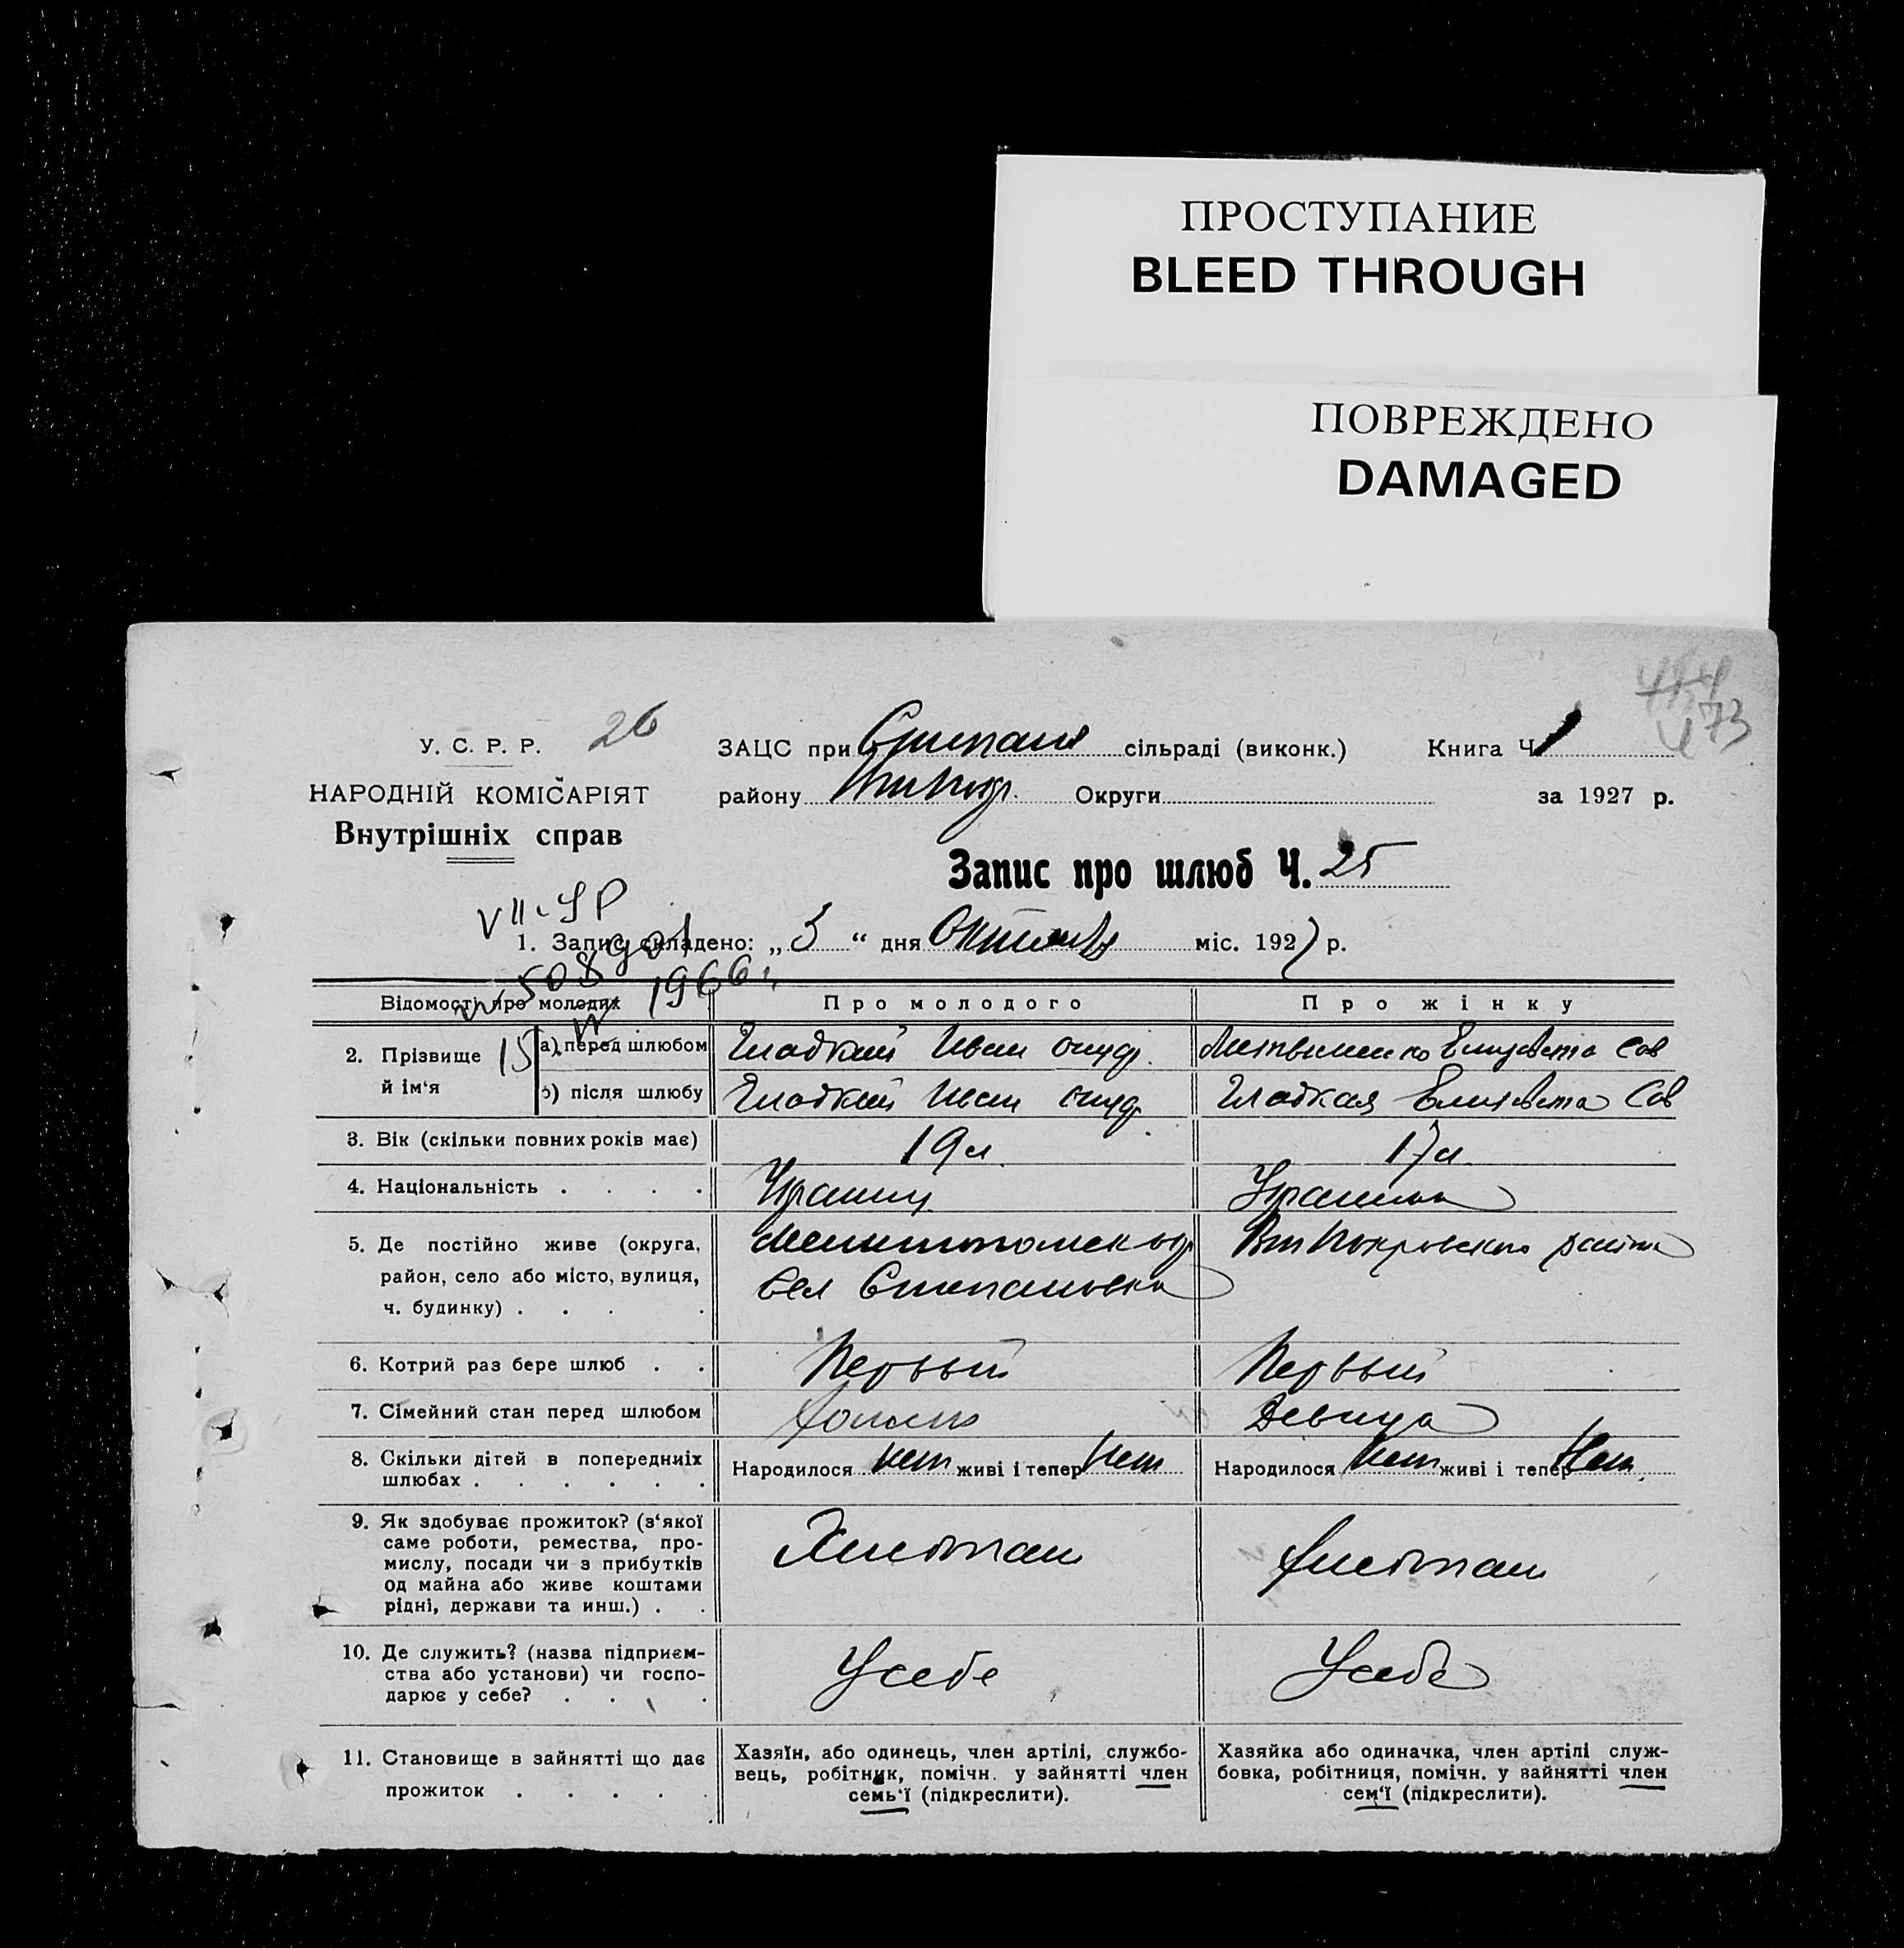 ПРОСТУПАНИЕ
BLEED THROUGH
ПОВРЕЖДЕНО
DAMAGED
473
У. С. Р. Р. 26
НАРОДНІЙ КОМІСАРІЯТ
Внутрішніх справ
ЗАЦС при Степан сільраді (виконк.) Книга Ч. 1
району Округи за 1927 р.
Запис про шлюб Ч. 25
1. Запис складено: „ 3 “ дня Октября міс. 1927 р.
508 1966 г.
15
Відомості про молодих Про молодого Про жінку
2. Прізвище й ім‘я
а) перед шлюбом Гладкий Иван Литвиненко Елизавета Сав
б) після шлюбу Гладкий Иван Гладкая Елизавета Сав
3. Вік (скільки повних років має) 19 л. 17 л.
4. Національність . . . . Украинец Украинка
5. Де постійно живе (округа,
район, село або місто, вулиця,
ч. будинку) . . . .
Мелитопольск окр
Сел Степановка
Покровского района
6. Котрий раз бере шлюб . . Первый Первый
7. Сімейний стан перед шлюбом Холост Девица
8. Скільки дітей в попередниіх
шлюбах . . . . . .
Народилося нет живі і тепер нет Народилося нет живі і тепер нет
9. Як здобуває прожиток? (з‘якої
саме роботи, ремества, про-
мислу, посади чи з прибутків
од майна або живе коштами
рідні, держави та инш.) . .
Хлебопаш Хлебопаш
10. Де служить? (назва підприєм-
ства або установи) чи госпо-
дарює у себе? . . . .
У себе У себе
11. Становище в зайнятті що дає
прожиток . . . . .
Хазяїн, або одинець, член артілі, службо-
вець, робітник, помічн. у зайнятті член
семь‘ї (підкреслити).
Хазяйка або одиначка, член артілі служ-
бовка, робітниця, помічн. у зайнятті член
сем‘ї (підкреслити).